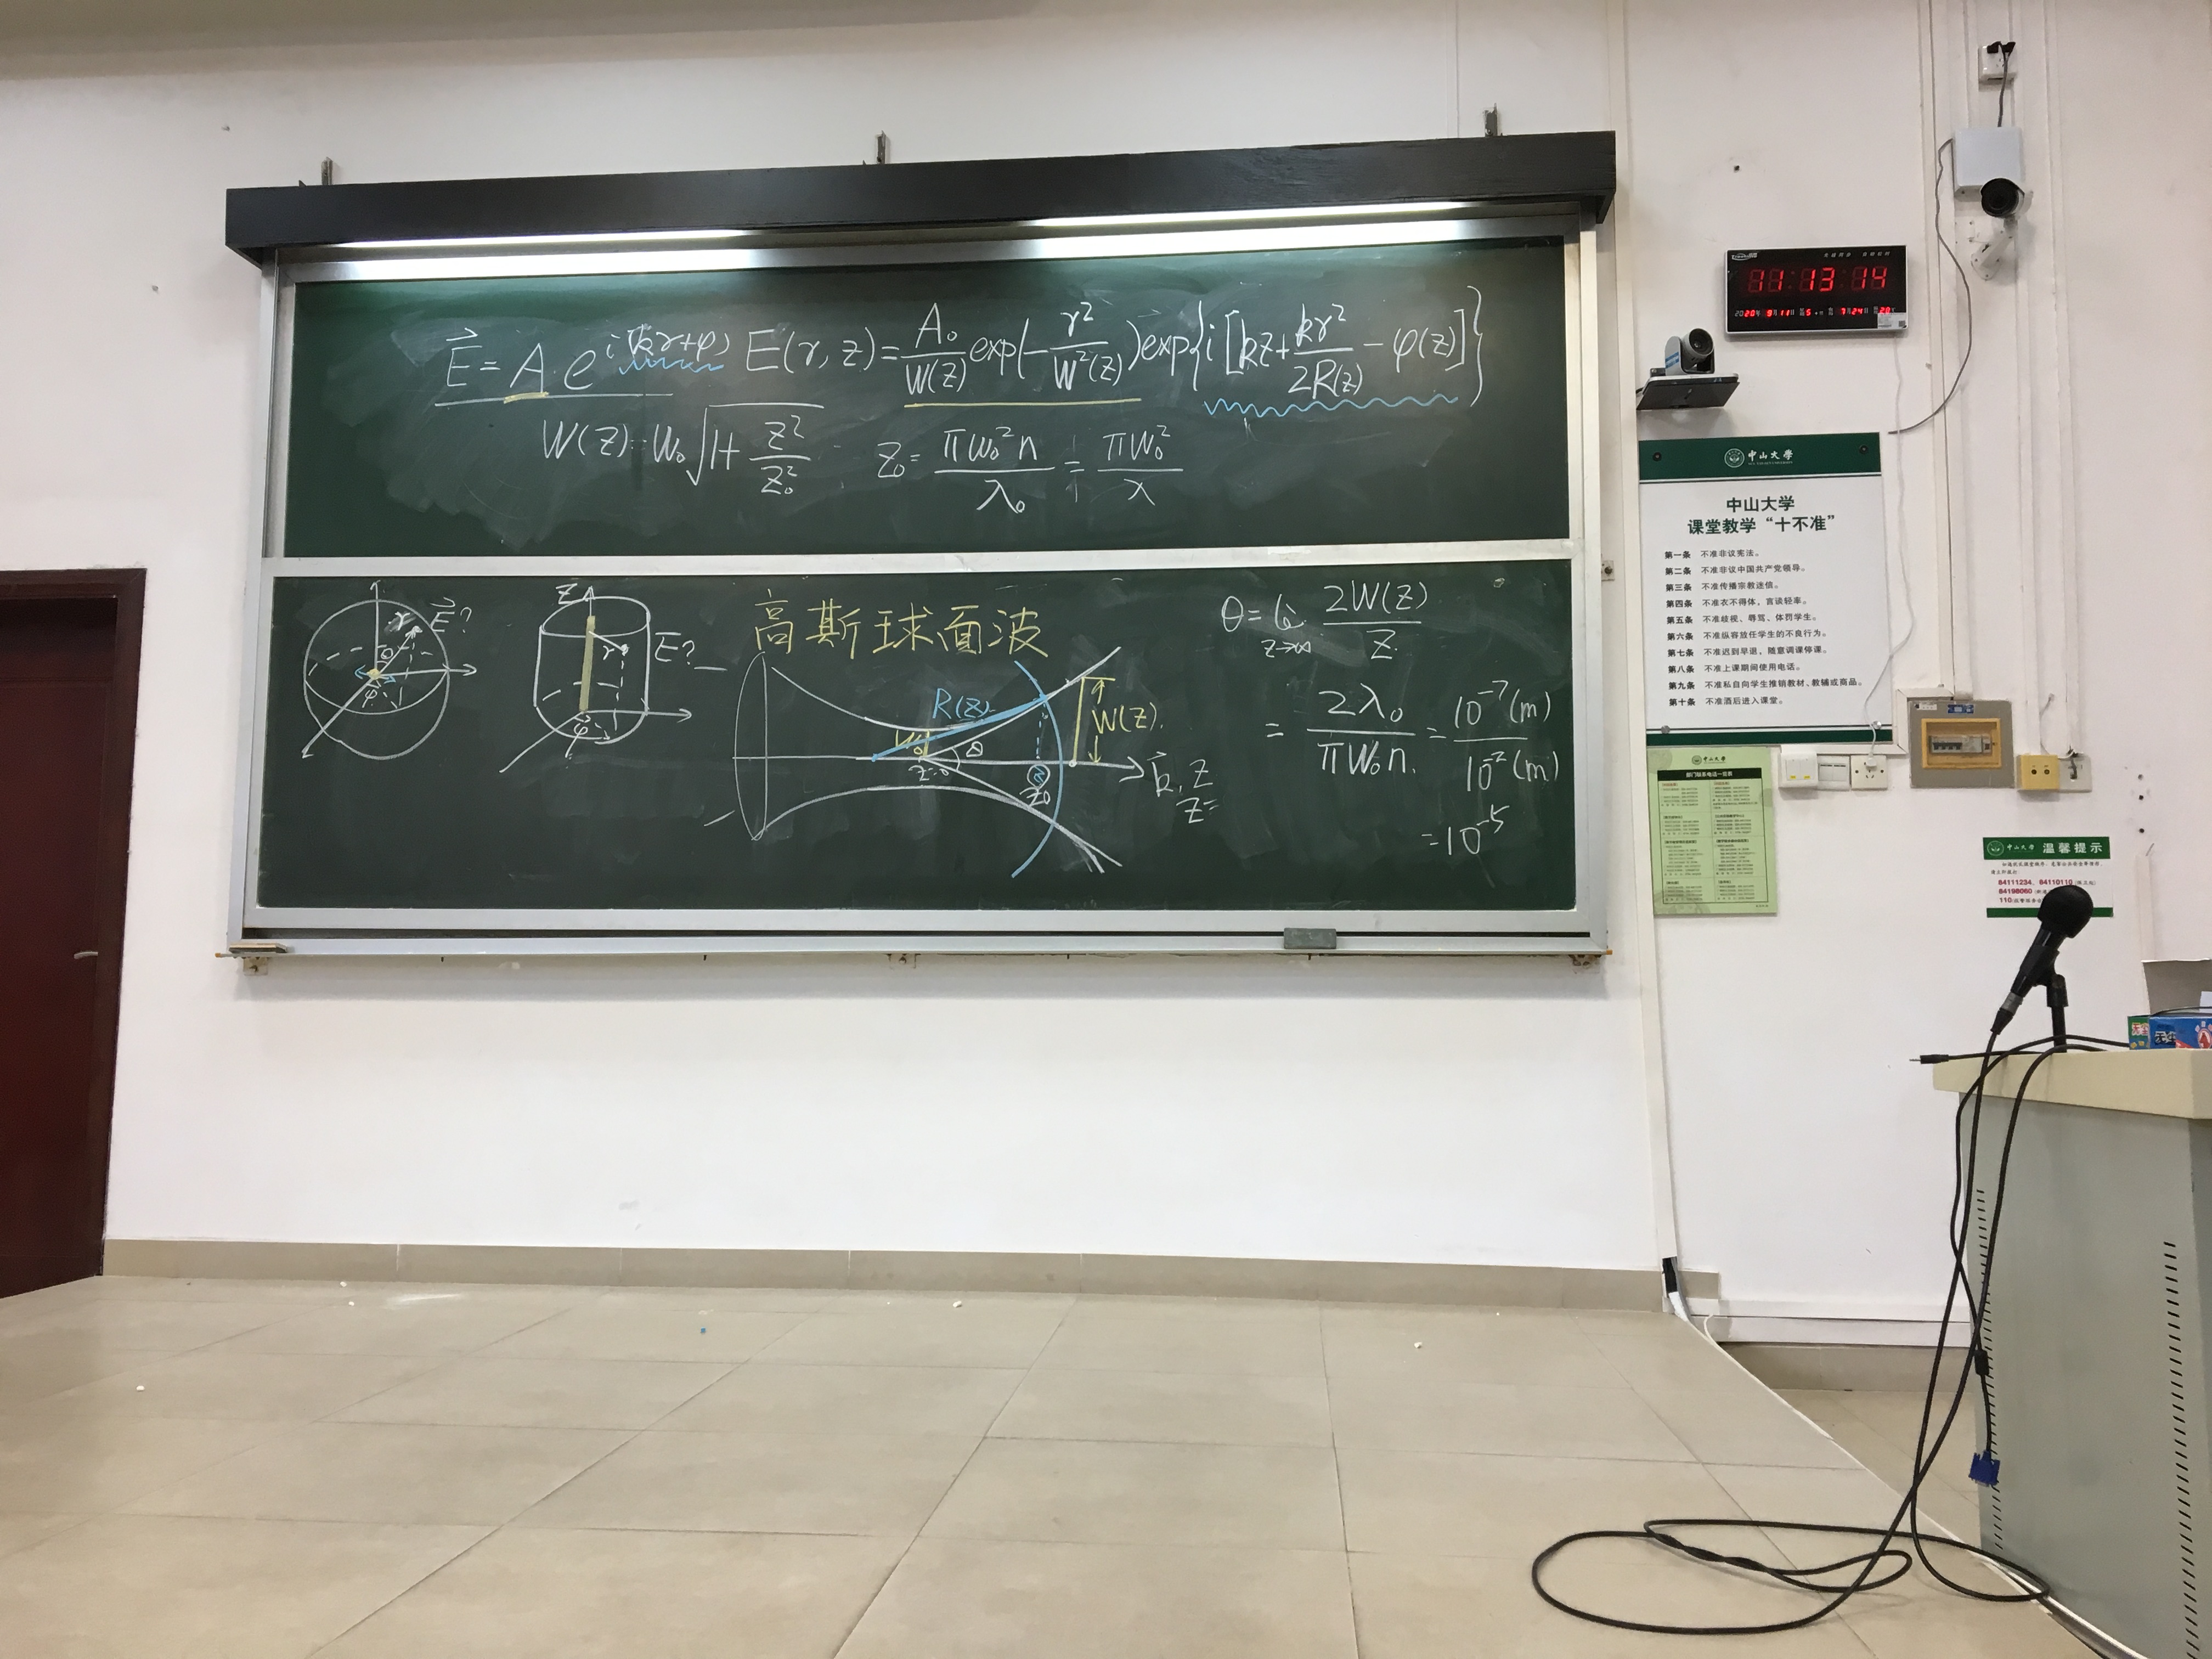 E⃗ = A e^{i(k⃗r+φ)} E(r, z) = A₀/W(z) exp(-r²/W²(z)) exp{i[kz + kr²/2R(z) - φ(z)]}
W(z) = W₀√(1+z²/z₀²) z₀ = πW₀²n/λ₀ = πW₀²/λ
r E⃗?
θ
φ
Z
r E?
φ
高斯球面波
R(z)
W₀ θ W(z)
z=0 z₀
k⃗, z
z=
θ = lim_{z→∞} 2W(z)/z
= 2λ₀/πW₀n = 10⁻⁷(m)/10⁻²(m)
= 10⁻⁵
11:13 14
中山大学
中山大学
课堂教学“十不准”
第一条 不准非议宪法。
第二条 不准非议中国共产党领导。
第三条 不准传播宗教迷信。
第四条 不准衣不得体、言谈轻率。
第五条 不准歧视、辱骂、体罚学生。
第六条 不准纵容放任学生的不良行为。
第七条 不准迟到早退、随意调课停课。
第八条 不准上课期间使用电话。
第九条 不准私自向学生推销教材、教辅或商品。
第十条 不准酒后进入课堂。
中山大学
部门联系电话一览表
中山大学 温馨提示
84111234、84110110
84198060
110
无尘